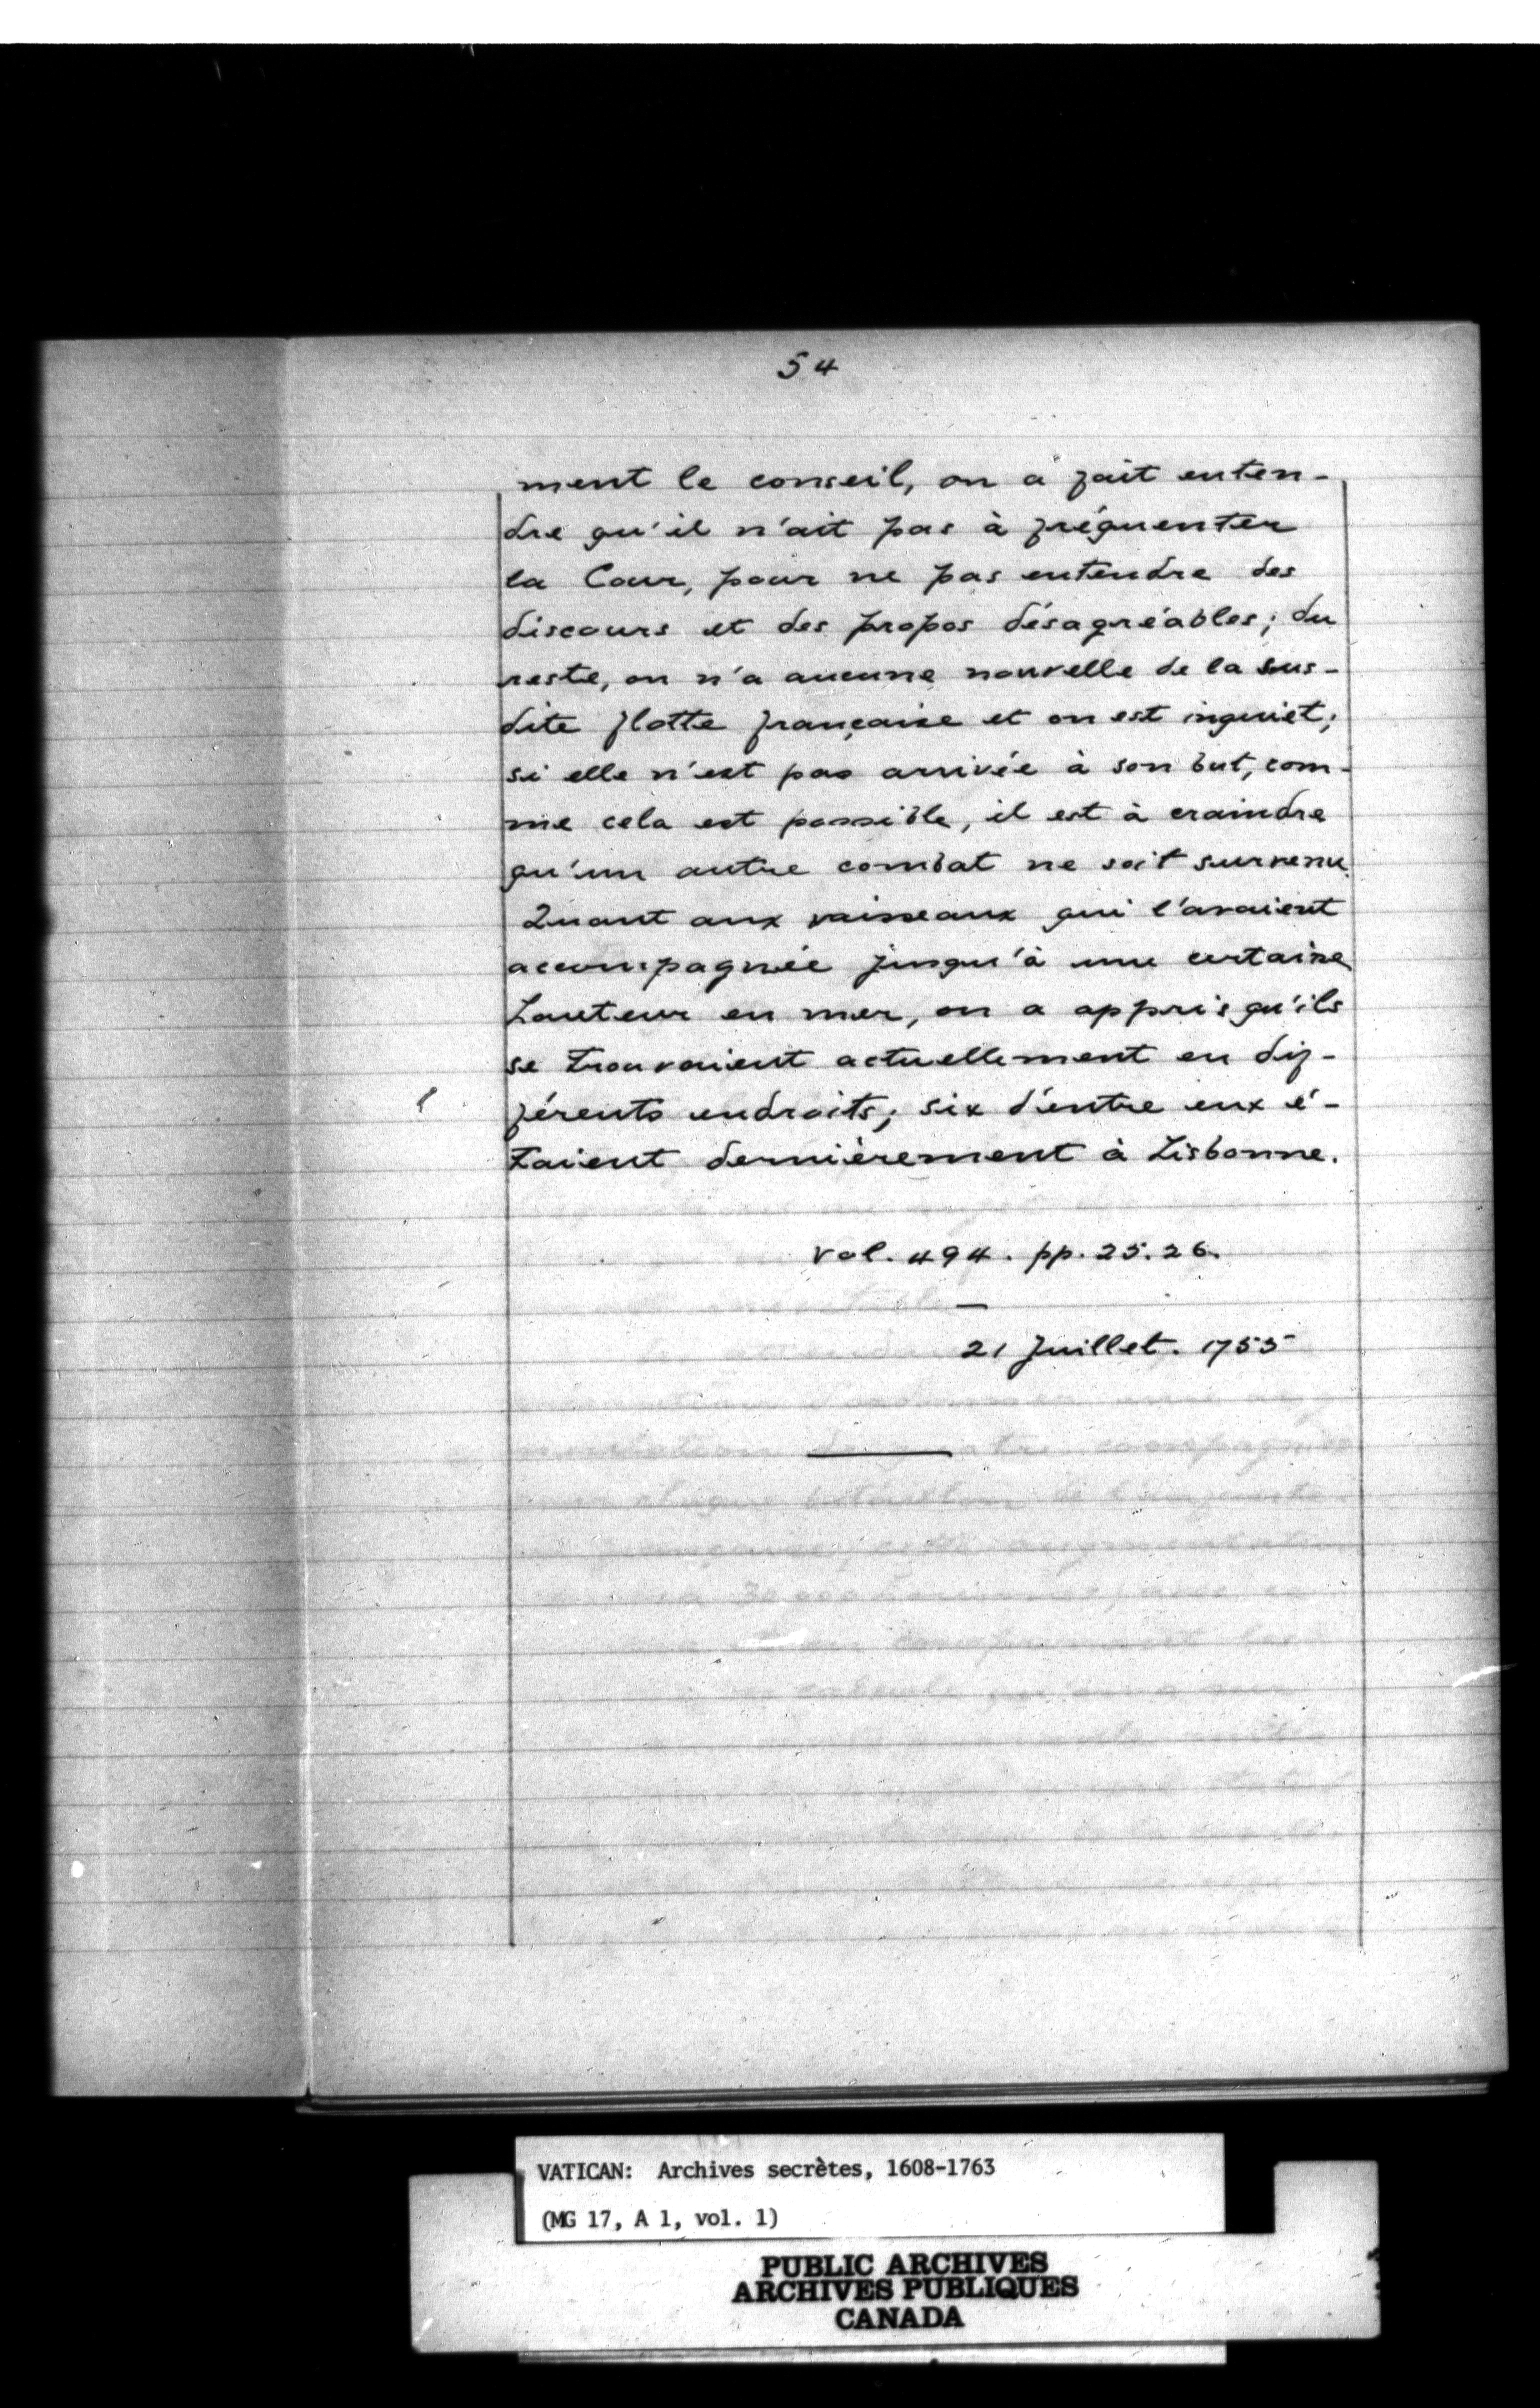 54
ment le conseil, on a fait enten-
dre qu'il n'ait pas à fréquenter
la Cour, pour ne pas entendre des
discours et des propos désagréables; du
reste, on n'a aucune nouvelle de la sus-
dite flotte française et on est inquiet;
si elle n'est pas arrivée à son but, com-
me cela est possible, il est à craindre
qu'un autre combat ne soit survenu.
Quant aux vaisseaux qui l'avaient
accompagnée jusqu'à une certaine
hauteur en mer, on a appris qu'ils
se trouvaient actuellement en dif-
férents endroits; six d'entre eux é-
taient dernièrement à Lisbonne.
Vol. 494. pp. 25. 26.
21 Juillet. 1755
VATICAN: Archives secrètes, 1608-1763
(MG 17, A 1, vol. 1)
PUBLIC ARCHIVES
ARCHIVES PUBLIQUES
CANADA